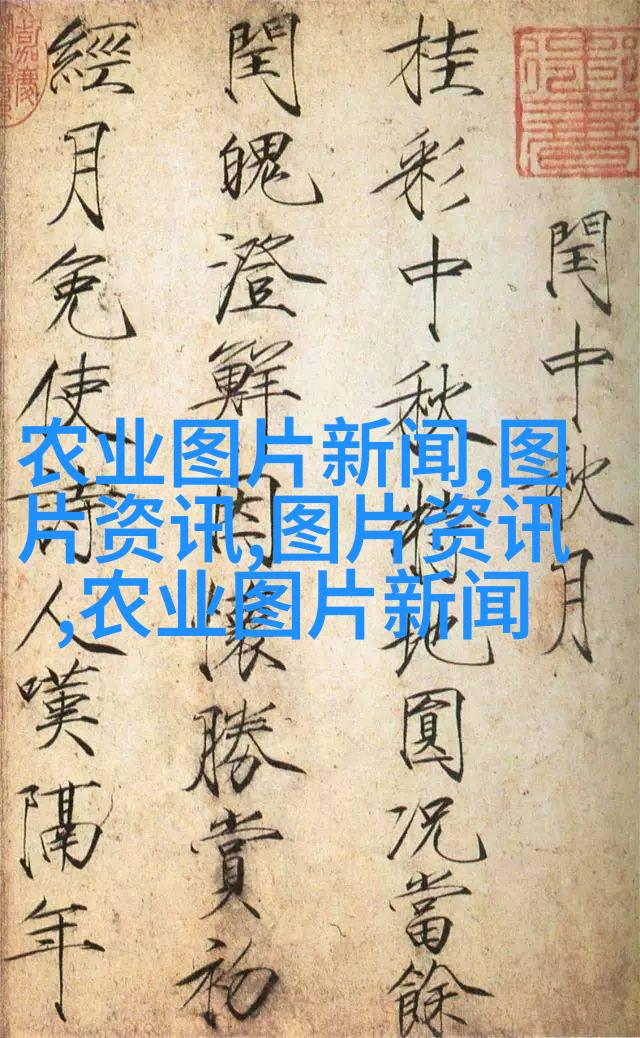 閏中秋月
桂彩中秋特地圓况當餘
閏魄澄鮮因懷勝賞初
經月免使詩人嘆隔年
农业图片新闻,图
片资讯,图片资讯
,农业图片新闻